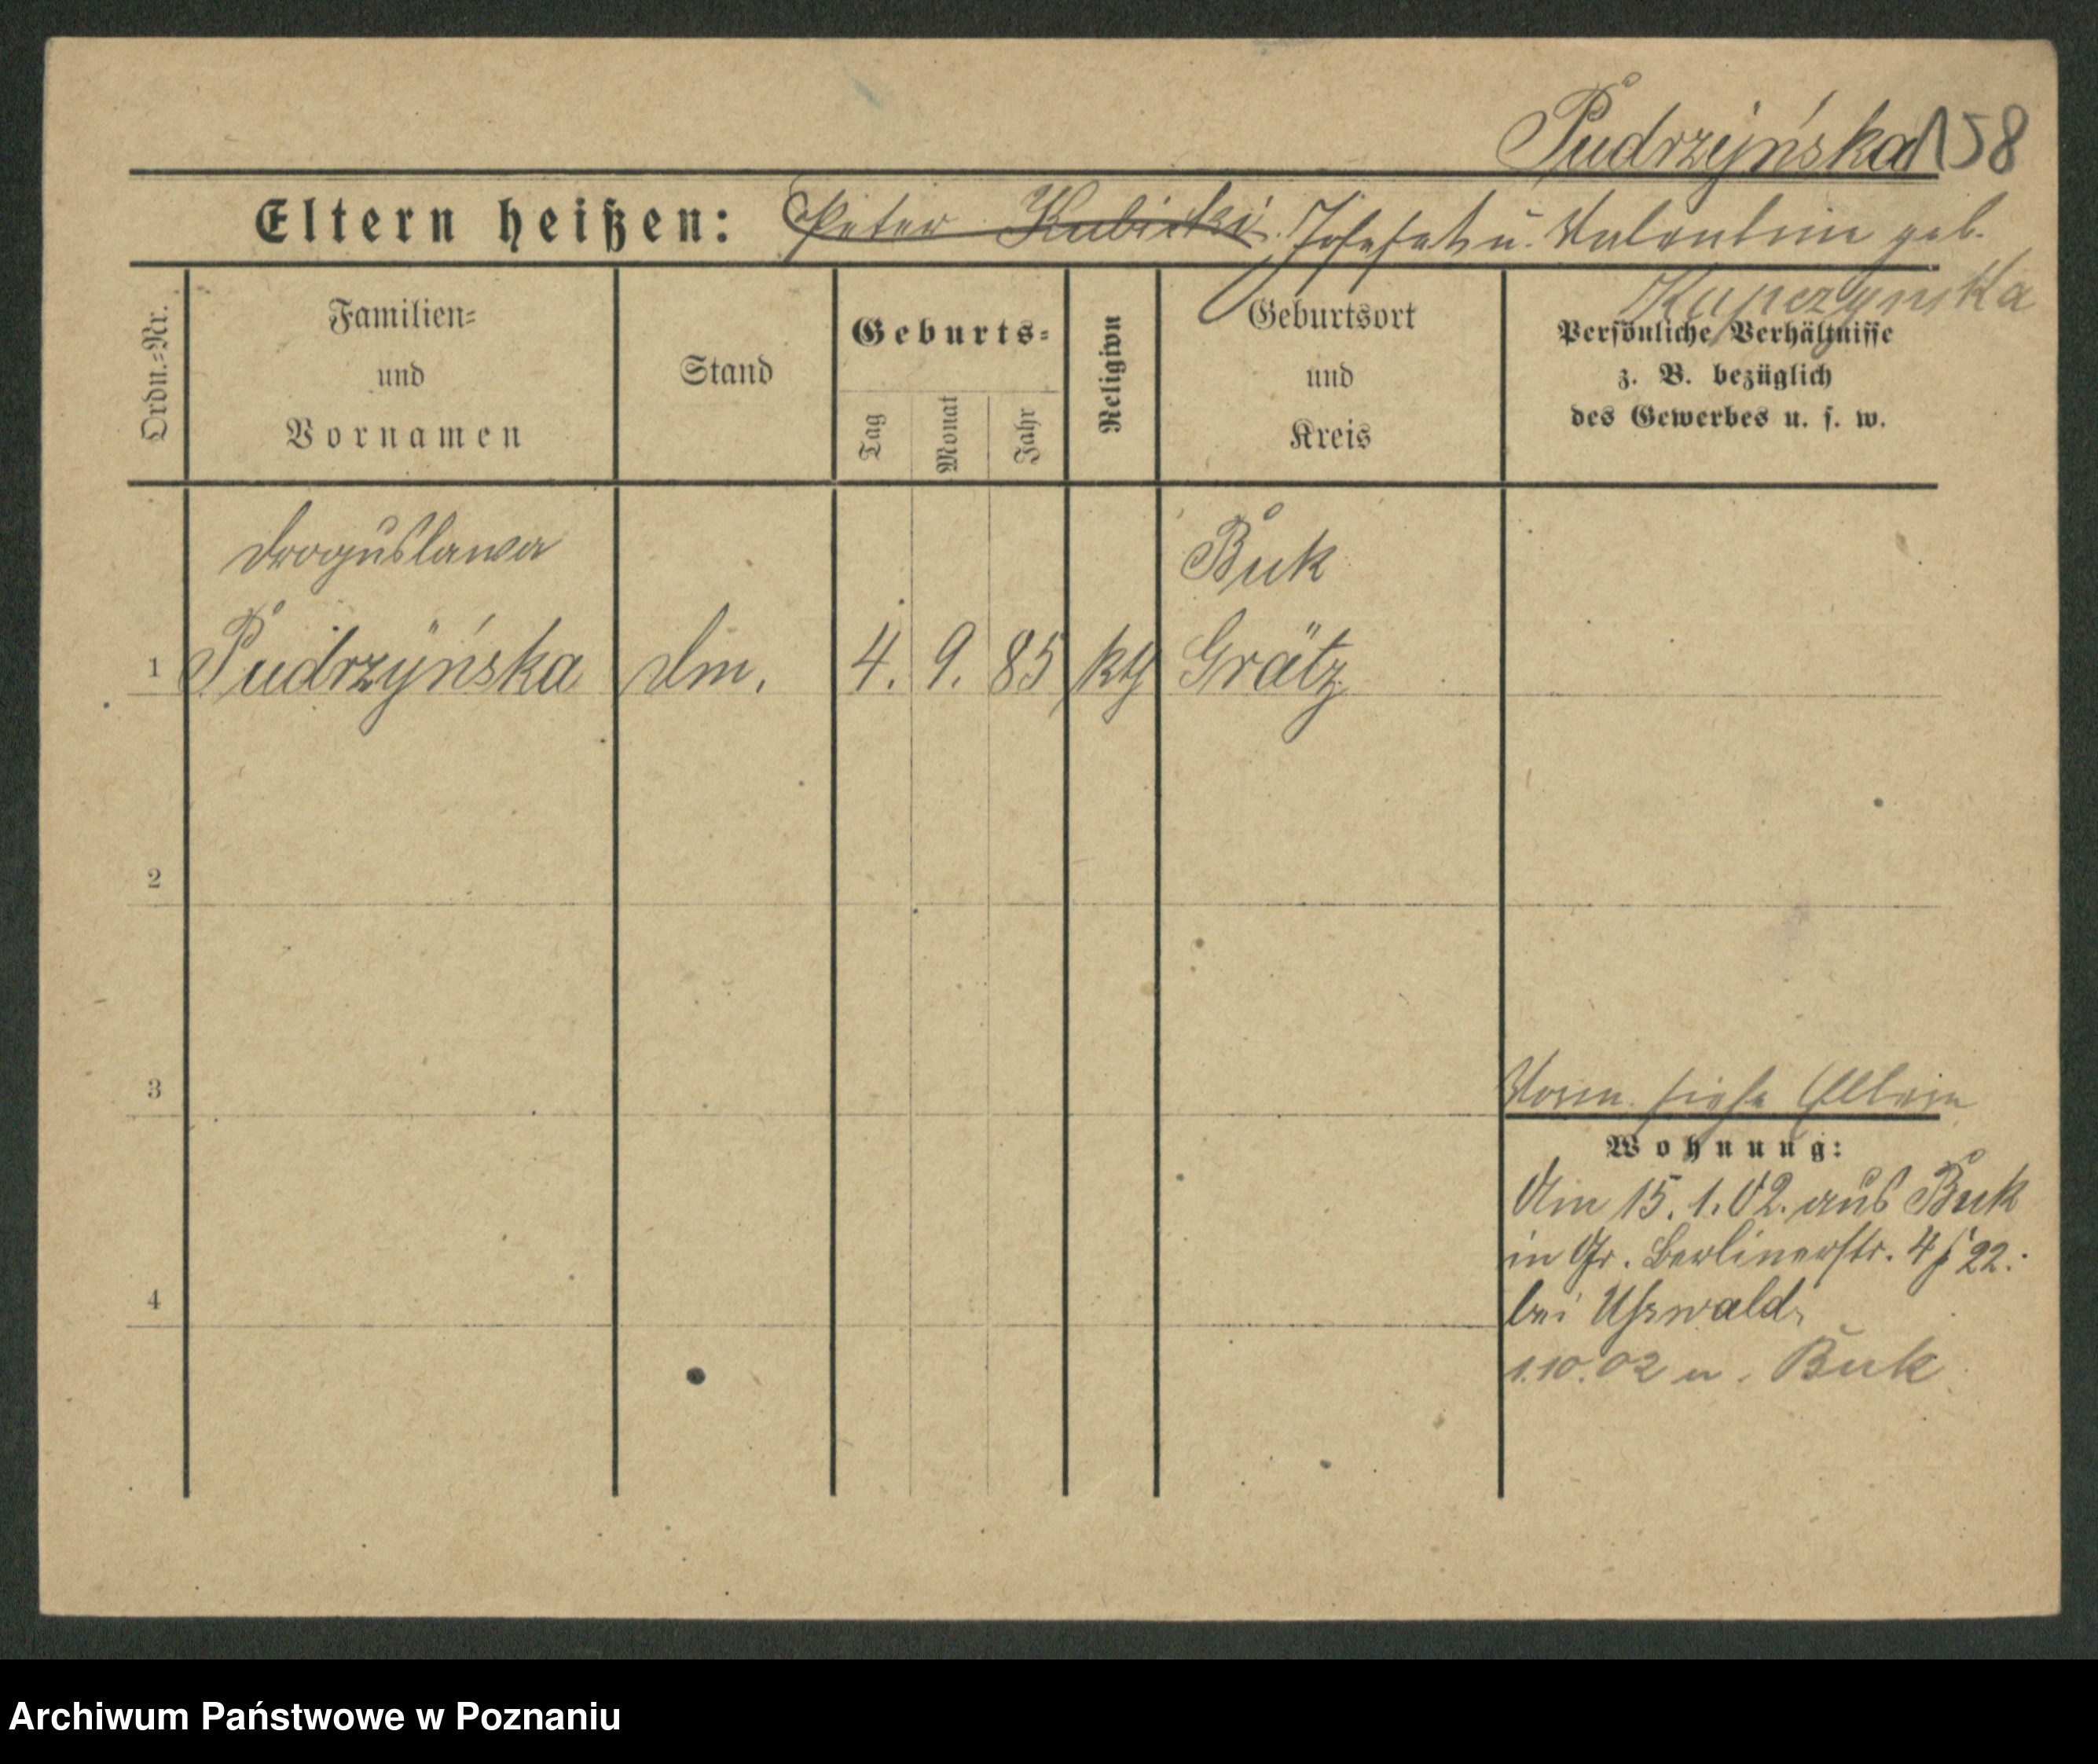 Pudrzyńska 158
Eltern heißen: Peter Kubicki Josefat u. Valentine geb.
Kupczynska
Ordn.=Nr.
Familien=
und
Vornamen
Stand
Geburts=
Tag
Monat
Jahr
Religion
Geburtsort
und
Kreis
Persönliche Verhältnisse
z. B. bezüglich
des Gewerbes u. s. w.
Droguslawa
Buk
1 Pudrzyńska Dm. 4. 9. 85 kth Grätz
2
3
Vorm. siehe
Wohnung:
Am 15.1.02. aus Buk
in Gr. Berlinerstr. 22.
bei
4
1.10.02 n. Buk
Archiwum Państwowe w Poznaniu